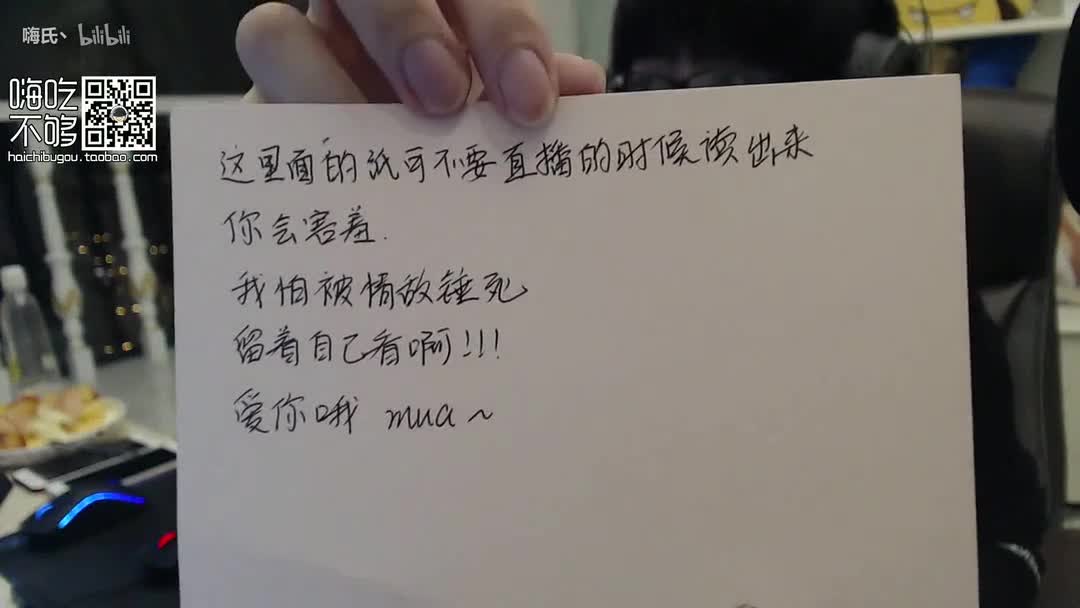 嗨氏丶 bilibili
嗨吃
不够
haichibugou.taobao.com
这里面的纸可不要直播的时候读出来
你会害羞.
我怕被情敌锤死
留着自己看啊!!!
爱你哦 mua~